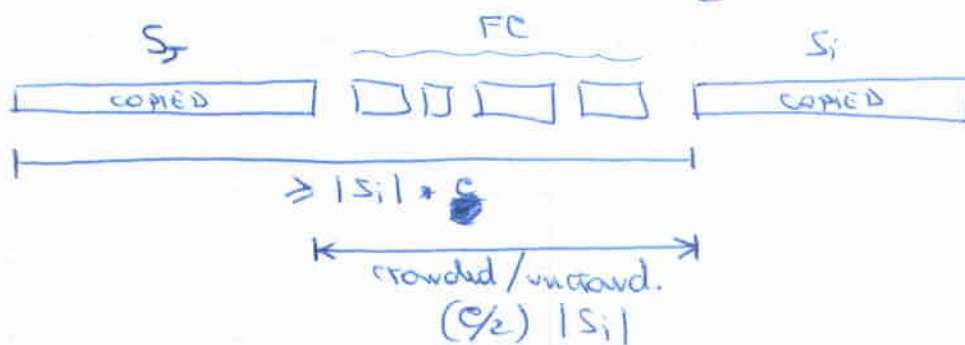 FC
Sj Si
COPIED COPIED
≥ |Si| * C
crowded/uncrowd.
(C/2) |Si|